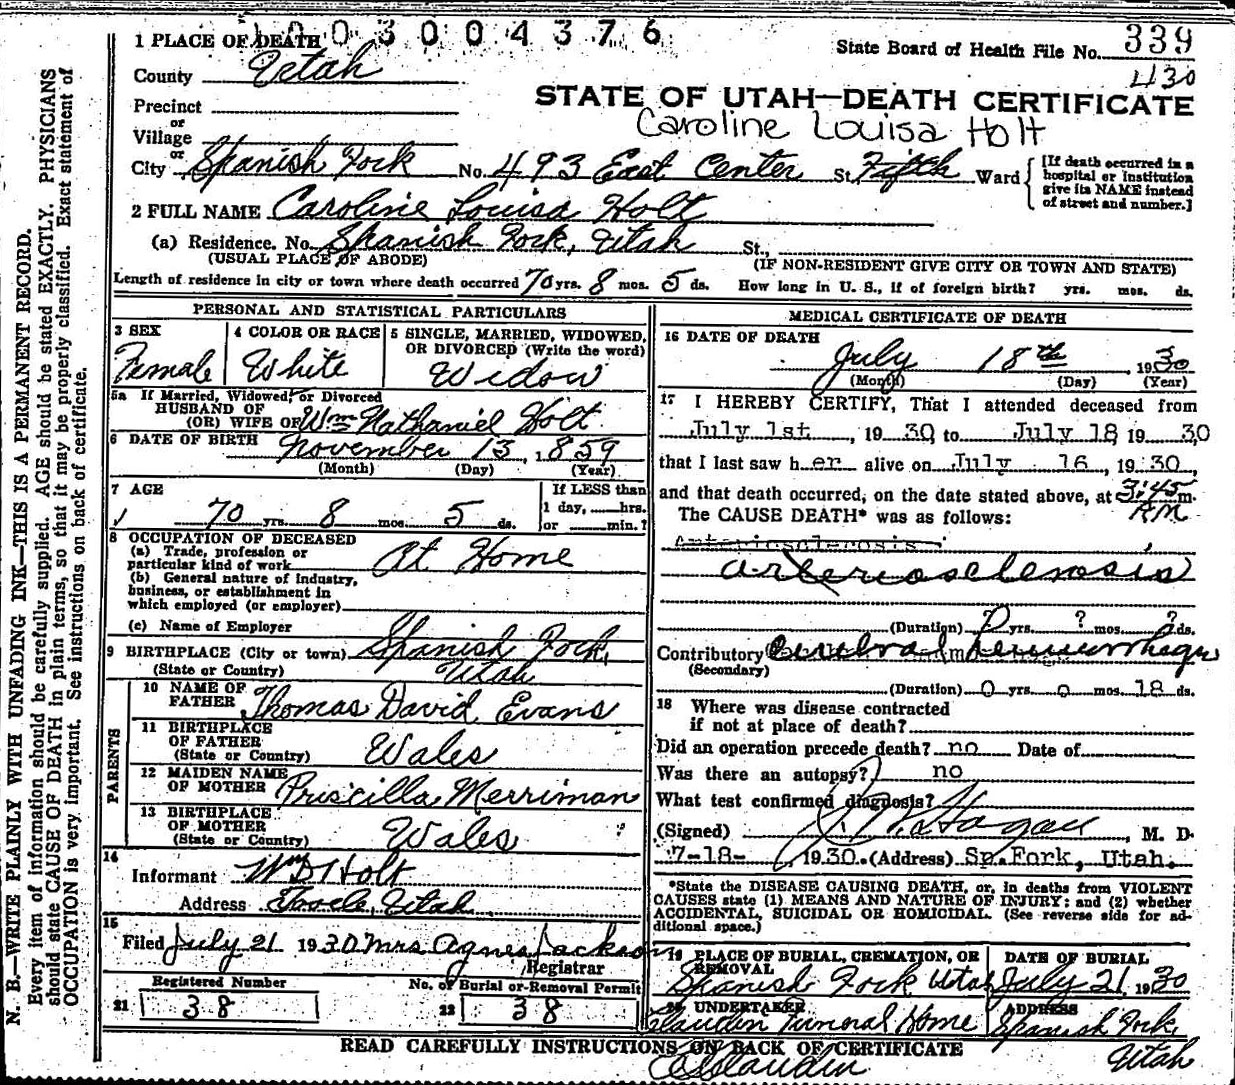 1003004376
State Board of Health File No. 339
430
1 PLACE OF DEATH
County Utah
STATE OF UTAH—DEATH CERTIFICATE
Caroline Louisa Holt
Precinct
or
Village
or
City Spanish Fork No. 493 East Center St. Fifth Ward
[If death occurred in a hospital or institution give its NAME instead of street and number.]
2 FULL NAME Caroline Louisa Holt
(a) Residence. No. Spanish Fork, Utah St.,
(USUAL PLACE OF ABODE) (IF NON-RESIDENT GIVE CITY OR TOWN AND STATE)
Length of residence in city or town where death occurred 70 yrs. 8 mos. 5 ds. How long in U. S., if of foreign birth? yrs. mos. ds.
PERSONAL AND STATISTICAL PARTICULARS
3 SEX
Female
4 COLOR OR RACE
White
5 SINGLE, MARRIED, WIDOWED, OR DIVORCED (Write the word)
Widow
5a If Married, Widowed, or Divorced
HUSBAND OF
(OR) WIFE OF Wm Nathaniel Holt
6 DATE OF BIRTH November 13, 1859
(Month) (Day) (Year)
7 AGE
70 yrs. 8 mos. 5 ds.
If LESS than
1 day, hrs.
or min.?
8 OCCUPATION OF DECEASED
(a) Trade, profession or
particular kind of work At Home
(b) General nature of industry,
business, or establishment in
which employed (or employer)
(c) Name of Employer
9 BIRTHPLACE (City or town) Spanish Fork,
(State or Country) Utah
PARENTS
10 NAME OF
FATHER Thomas David Evans
11 BIRTHPLACE
OF FATHER
(State or Country) Wales
12 MAIDEN NAME
OF MOTHER Priscilla Merriman
13 BIRTHPLACE
OF MOTHER
(State or Country) Wales
14
Informant Wm B Holt
Address Tooele, Utah
15
Filed July 21 1930 Mrs Agnes Jackson
Registrar
Registered Number No. of Burial or Removal Permit
21 38 22 38
MEDICAL CERTIFICATE OF DEATH
16 DATE OF DEATH
July 18th 1930
(Month) (Day) (Year)
17 I HEREBY CERTIFY, That I attended deceased from
July 1st, 1930 to July 18 1930
that I last saw her alive on July 16, 1930,
and that death occurred, on the date stated above, at 3:45 m.
The CAUSE DEATH* was as follows:
arteriosclerosis
(Duration) ? yrs. ? mos. ? ds.
Contributory Cerebral hemorrhage
(Secondary)
(Duration) 0 yrs. 0 mos. 18 ds.
18 Where was disease contracted
if not at place of death?
Did an operation precede death? no Date of
Was there an autopsy? no
What test confirmed diagnosis?
(Signed) Hagan, M. D.
7-18-, 1930. (Address) Sp. Fork, Utah.
*State the DISEASE CAUSING DEATH, or, in deaths from VIOLENT
CAUSES state (1) MEANS AND NATURE OF INJURY: and (2) whether
ACCIDENTAL, SUICIDAL OR HOMICIDAL. (See reverse side for ad-
ditional space.)
19 PLACE OF BURIAL, CREMATION, OR REMOVAL
Spanish Fork Utah
DATE OF BURIAL
July 21 1930
20 UNDERTAKER
Claudin Funeral Home
ADDRESS
Spanish Fork,
Utah
READ CAREFULLY INSTRUCTIONS ON BACK OF CERTIFICATE
Claudin
N. B.—WRITE PLAINLY WITH UNFADING INK—THIS IS A PERMANENT RECORD.
Every item of information should be carefully supplied. AGE should be stated EXACTLY. PHYSICIANS
should state CAUSE OF DEATH in plain terms, so that it may be properly classified. Exact statement of
OCCUPATION is very important. See instructions on back of certificate.